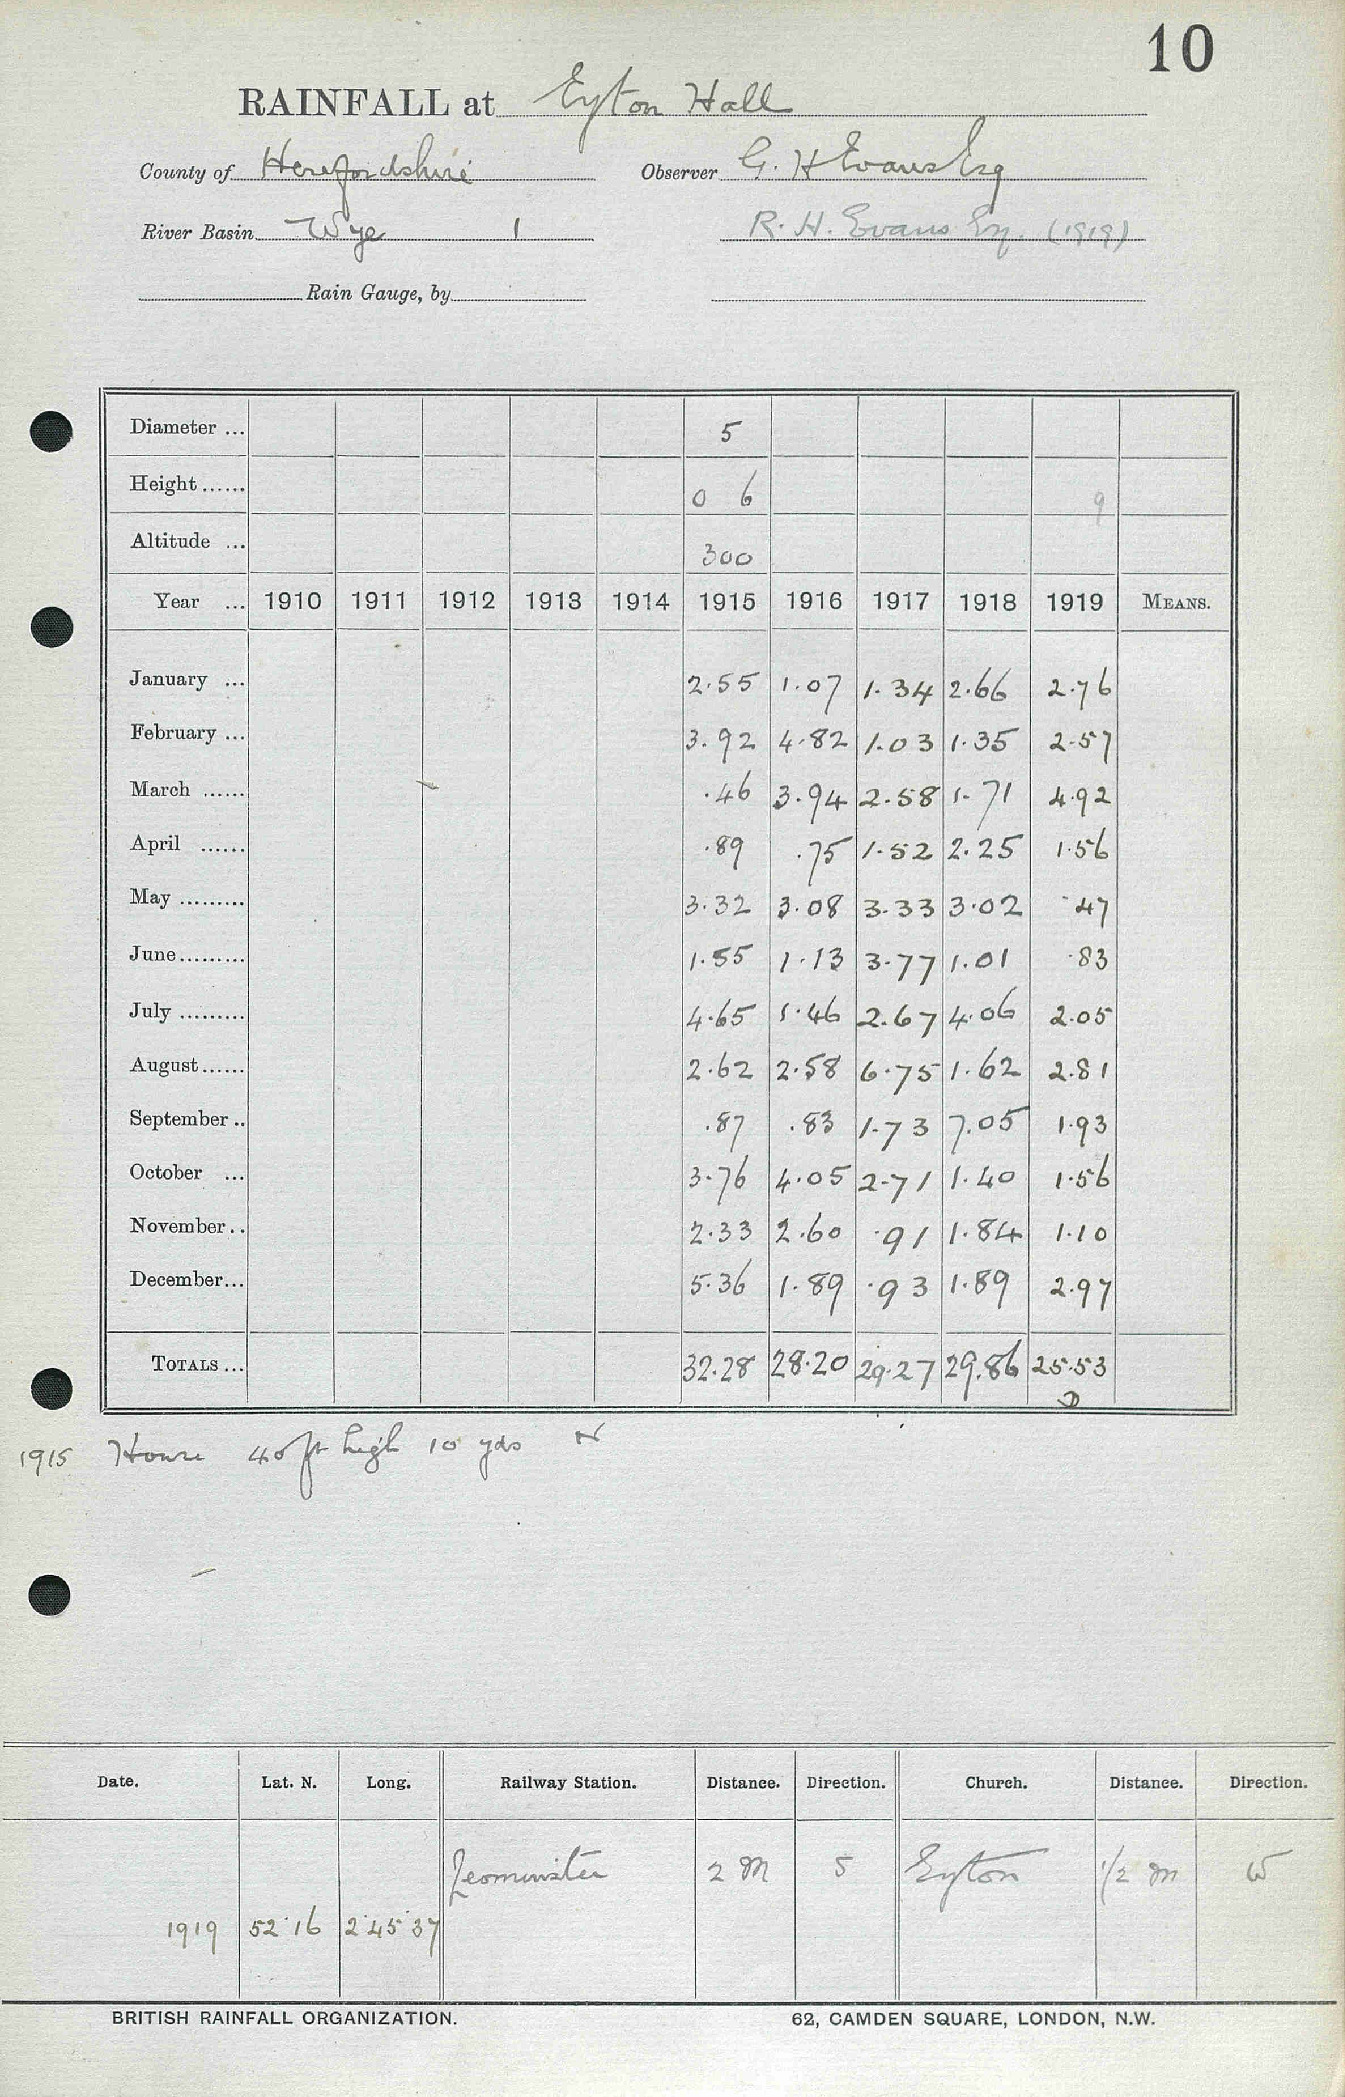 10
RAINFALL at Eyton Hall
County of Herefordshire Observer G. H Evans Esq
River Basin Wye 1 R. H. Evans Esq. (1919)
Rain Gauge, by
Diameter ... 5
Height ...... 0 6 9
Altitude ... 300
Year ... 1910 1911 1912 1913 1914 1915 1916 1917 1918 1919 MEANS.
January ... 2.55 1.07 1.34 2.66 2.76
February ... 3.92 4.82 1.03 1.35 2.57
March ...... .46 3.94 2.58 1.71 4.92
April ...... .89 .75 1.52 2.25 1.56
May ......... 3.32 3.08 3.33 3.02 .47
June ......... 1.55 1.13 3.77 1.01 .83
July ......... 4.65 1.46 2.67 4.06 2.05
August ...... 2.62 2.58 6.75 1.62 2.81
September .. .87 .83 1.73 7.05 1.93
October ... 3.76 4.05 2.71 1.40 1.56
November .. 2.33 2.60 .91 1.84 1.10
December ... 5.36 1.89 .93 1.89 2.97
TOTALS ... 32.28 28.20 29.27 29.86 25.53
D
1915 House 40 ft high 10 yds N
Date. Lat. N. Long. Railway Station. Distance. Direction. Church. Distance. Direction.
Leominster 2 m S Eyton 1/2 m W
1919 52 16 2 45 37
BRITISH RAINFALL ORGANIZATION. 62, CAMDEN SQUARE, LONDON, N.W.